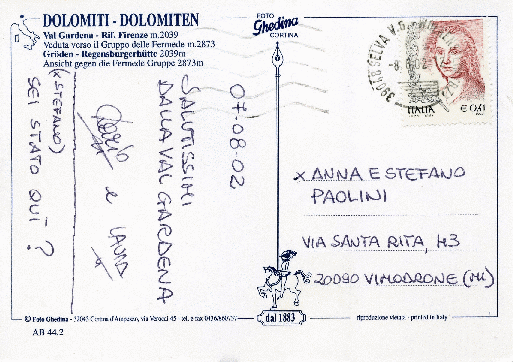 DOLOMITI - DOLOMITEN
Val Gardena - Rif. Firenze m.2039
Veduta verso il Gruppo delle Fermede m.2873
Gröden - Regensburgerhütte 2039m
Ansicht gegen die Fermede Gruppe 2873m
FOTO
Ghedina
CORTINA
39048 SELVA V.G.
ITALIA
€ 0,41
07-08-02
SALUTISSIMI
DALLA VAL GARDENA
e LAURA
(x STEFANO)
SEI STATO QUI?
x ANNA E STEFANO
PAOLINI
VIA SANTA RITA, 43
20090 VIMODRONE (MI)
dal 1883
© Foto Ghedina - 32043 Cortina d'Ampezzo, via Verocai 45 - tel. e fax 0436/860707
riproduzione vietata - printed in Italy
AB 44.2